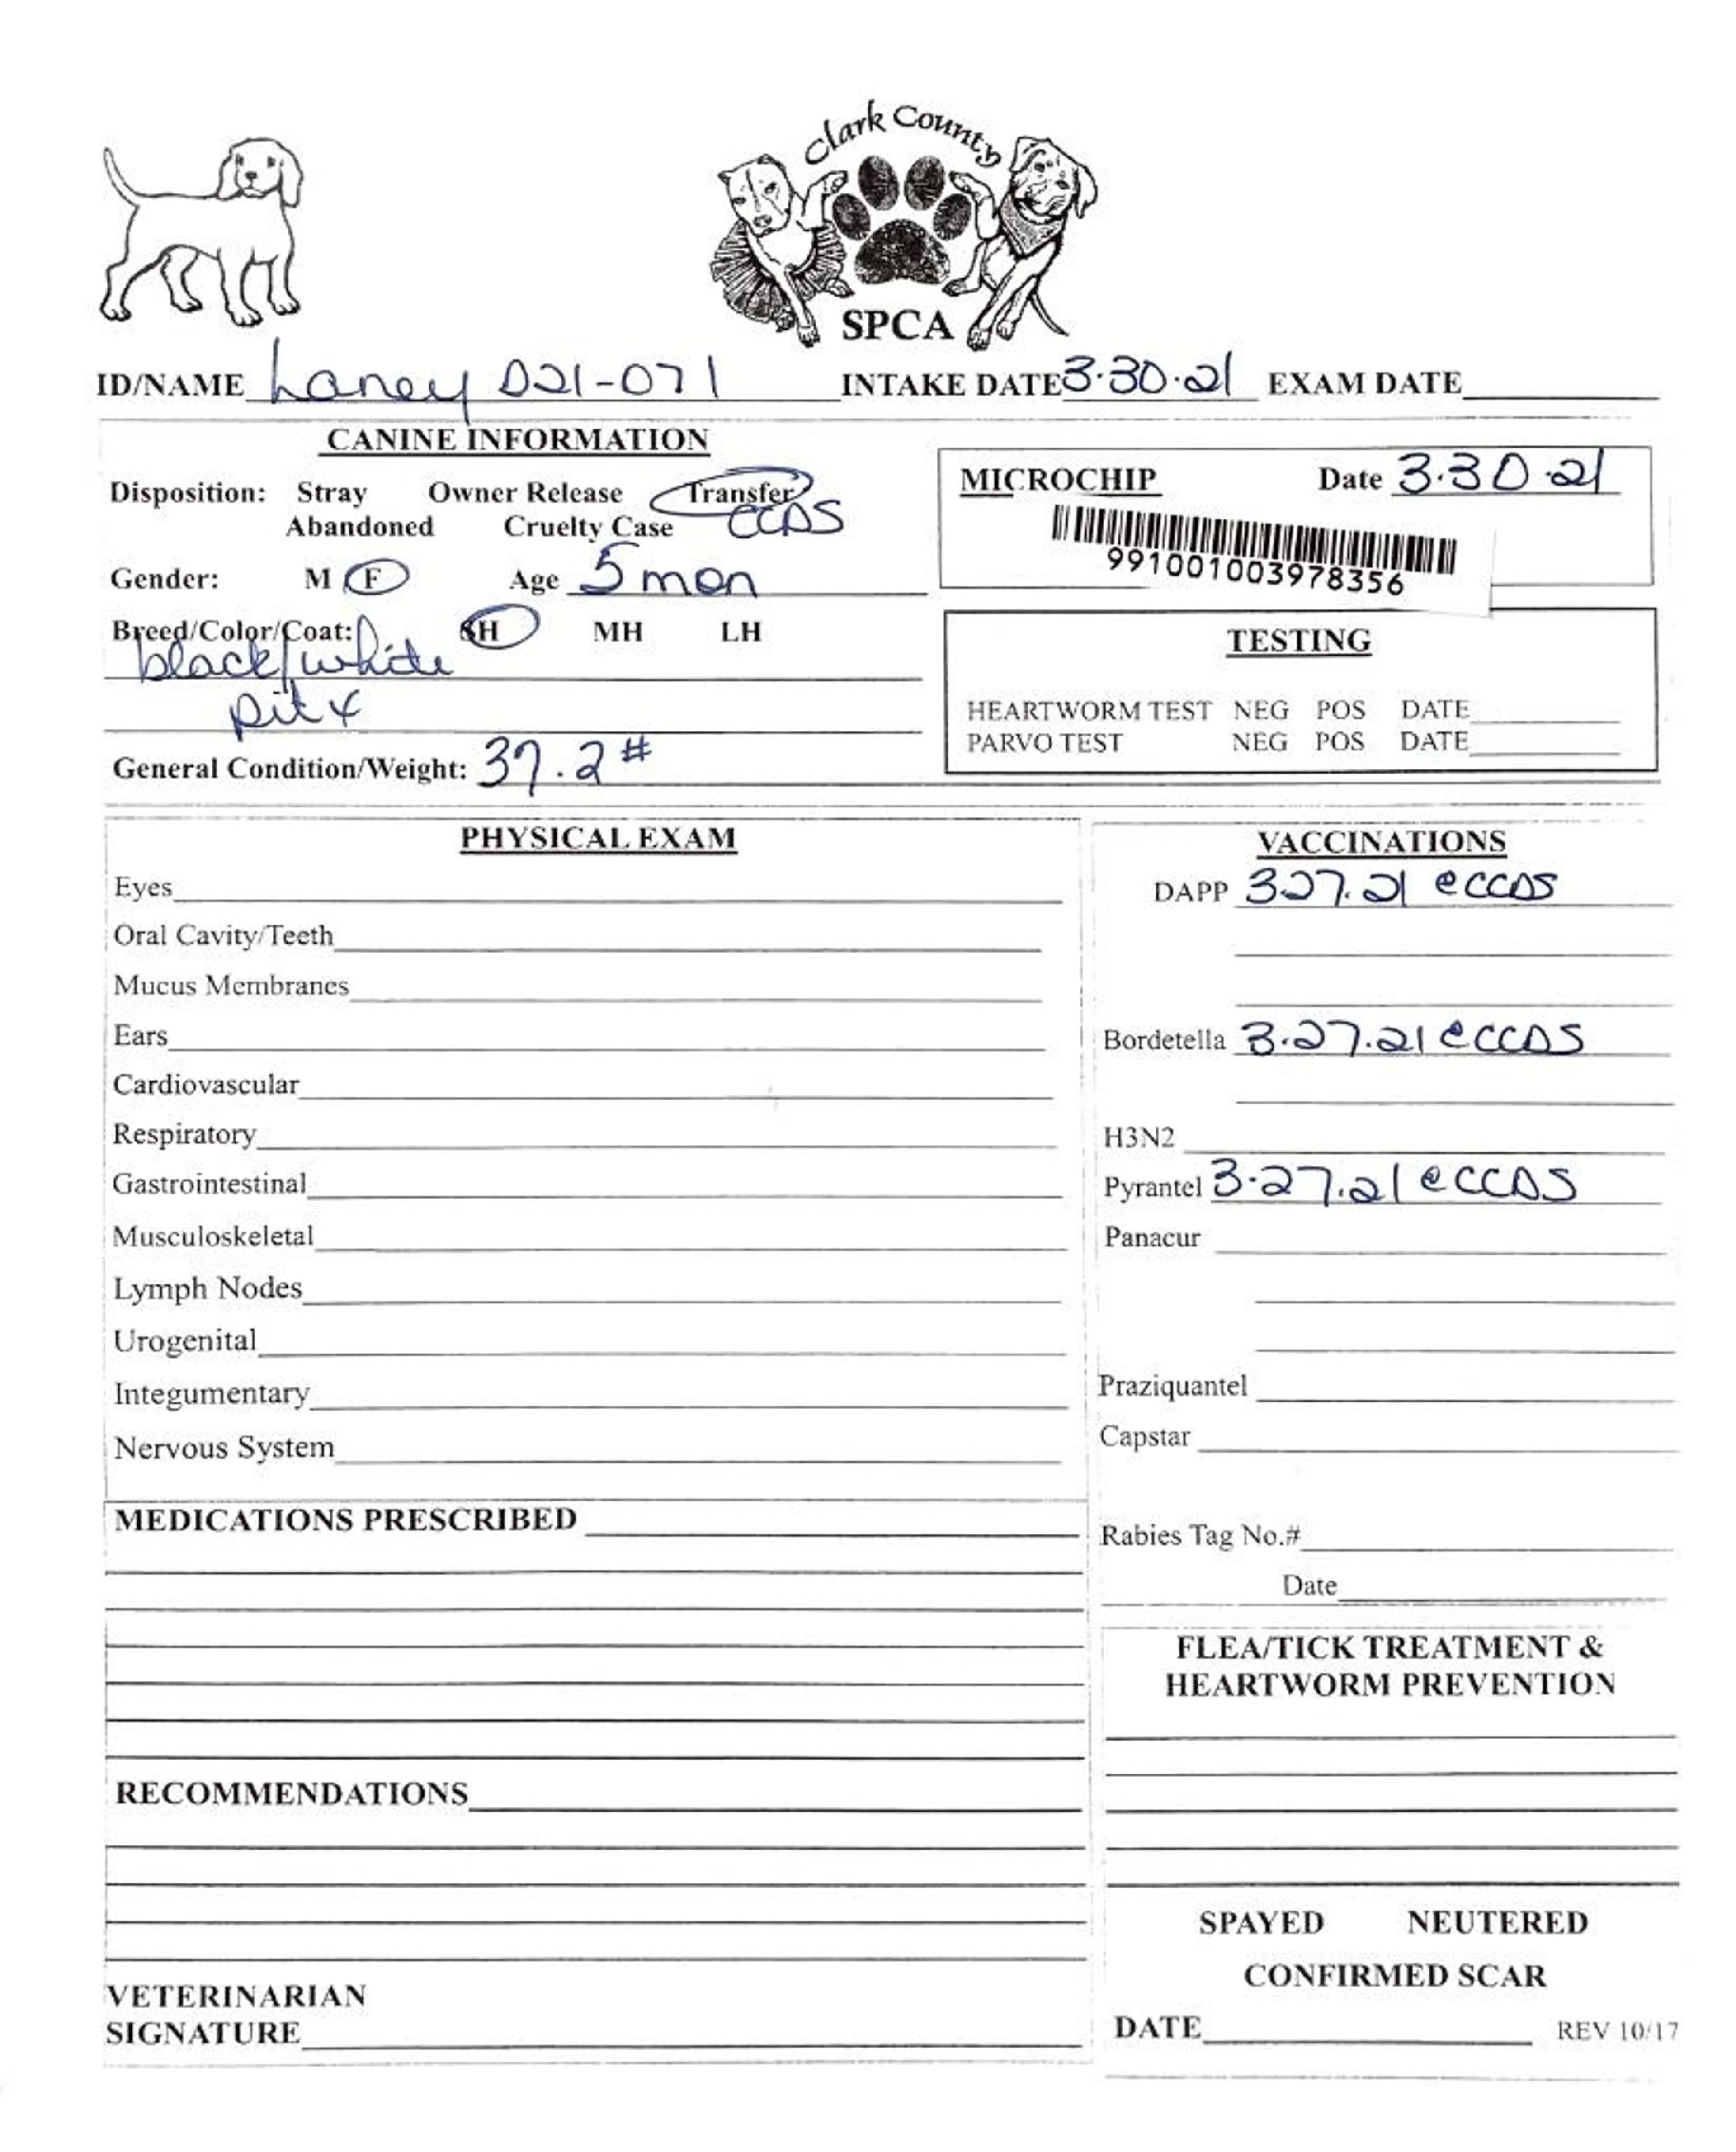 Clark County
SPCA
ID/NAME Laney D21-071 INTAKE DATE 3.30.21 EXAM DATE
CANINE INFORMATION
Disposition: Stray Owner Release Transfer
Abandoned Cruelty Case CCDS
Gender: M F Age 5 mon
Breed/Color/Coat: SH MH LH
black/white
pit x
General Condition/Weight: 37.2#
MICROCHIP Date 3.30.21
991001003978356
TESTING
HEARTWORM TEST NEG POS DATE
PARVO TEST NEG POS DATE
PHYSICAL EXAM
Eyes
Oral Cavity/Teeth
Mucus Membranes
Ears
Cardiovascular
Respiratory
Gastrointestinal
Musculoskeletal
Lymph Nodes
Urogenital
Integumentary
Nervous System
MEDICATIONS PRESCRIBED
RECOMMENDATIONS
VETERINARIAN
SIGNATURE
VACCINATIONS
DAPP 3.27.21 @CCDS
Bordetella 3.27.21 @CCDS
H3N2
Pyrantel 3.27.21 @CCDS
Panacur
Praziquantel
Capstar
Rabies Tag No.#
Date
FLEA/TICK TREATMENT &
HEARTWORM PREVENTION
SPAYED NEUTERED
CONFIRMED SCAR
DATE REV 10/17